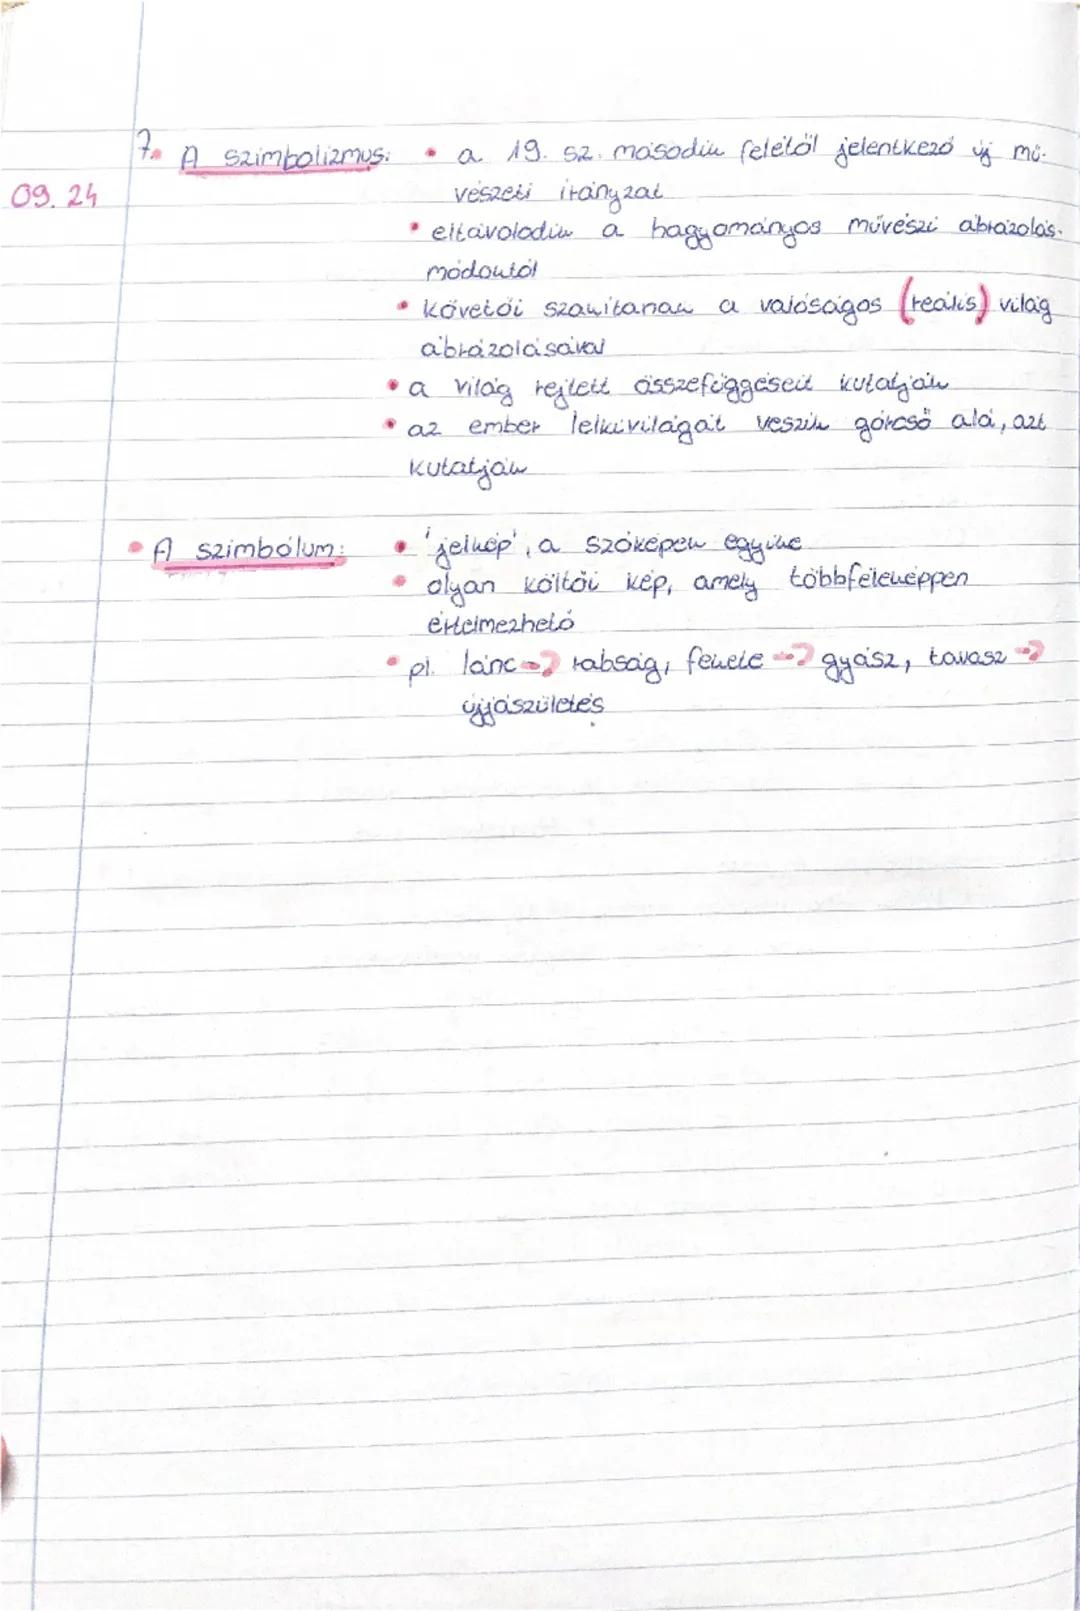 7. A szimbolizmus: • a 19. sz. második felétől jelentkező új mű-
09. 24
vészeti irányzat
• eltávolodik a hagyományos művészi ábrázolás-
módoktól
• követői szakítanak a valóságos (reális) világ
ábrázolásával
• a világ rejtett összefüggéseit kutatják
• az ember lelkivilágát veszik górcső alá, azt
kutatják
• A szimbólum: • 'jelkép', a szóképek egyike
• olyan költői kép, amely többféleképpen
értelmezhető
• pl. lánc → rabság, fekete → gyász, tavasz →
újjászületés